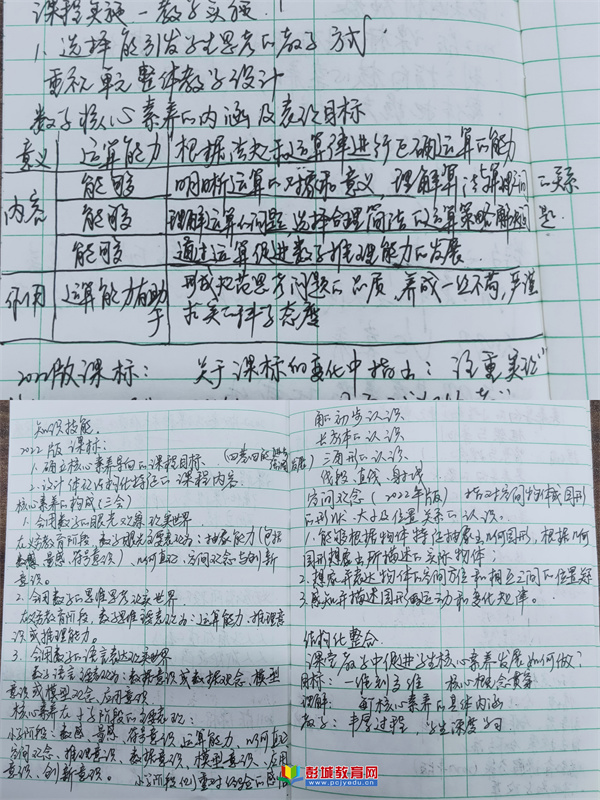 课程实施－教学实施
1. 选择能引发学生思考的教学方式
重视单元整体教学设计
数学核心素养的内涵及表现目标
意义 运算能力 根据法则和运算律进行正确运算的能力
内容 能够 明晰运算的对象和意义 理解算法与算理间的关系
能够 理解运算的问题,选择合理简洁的运算策略解决问题.
能够 通过运算促进数学推理能力的发展
作用 运算能力有助于 形成规范思考问题的品质,养成一丝不苟,严谨求实的科学态度
2022版课标: 关于课标的变化中指出: 注重实
知识技能.
2022版课标:
1. 确立核心素养导向的课程目标
2. 设计体现结构化特征的课程内容
核心素养的构成(三会)
1. 会用数学的眼光观察现实世界.
在义务教育阶段,数学眼光主要表现为:抽象能力(包括
数感、量感、符号意识)、几何直观、空间观念与创新
意识。
2. 会用数学的思维思考现实世界.
在义务教育阶段,数学思维主要表现为:运算能力、推理意
识或推理能力。
3. 会用数学的语言表达现实世界
数学语言主要表现为:数据意识或数据观念、模型
意识或模型观念、应用意识
核心素养在小学阶段的主要表现:
小学阶段:数感、量感、符号意识、运算能力、几何直观
空间观念、推理意识、数据意识、模型意识、应用
意识、创新意识。 小学阶段侧重对经验的感悟
角的初步认识
长方体的认识
三角形的认识
线段、直线、射线
空间观念(2022年版) 指对空间物体或图形
的形状、大小及位置关系的认识。
1. 能够根据物体特征抽象出几何图形,根据几何
图形想象出所描述的实际物体;
2. 想象并表达物体的空间方位和相互之间的位置关系
3. 感知并描述图形的运动和变化规律。
结构化整合.
课堂教学中促进学生核心素养发展如何做?
目标: 一维到多维 核心概念贯穿
理解: 核心素养的具体内涵
教学: 丰厚过程, 学生深度学习
彭城教育网
www.pcjyedu.cn